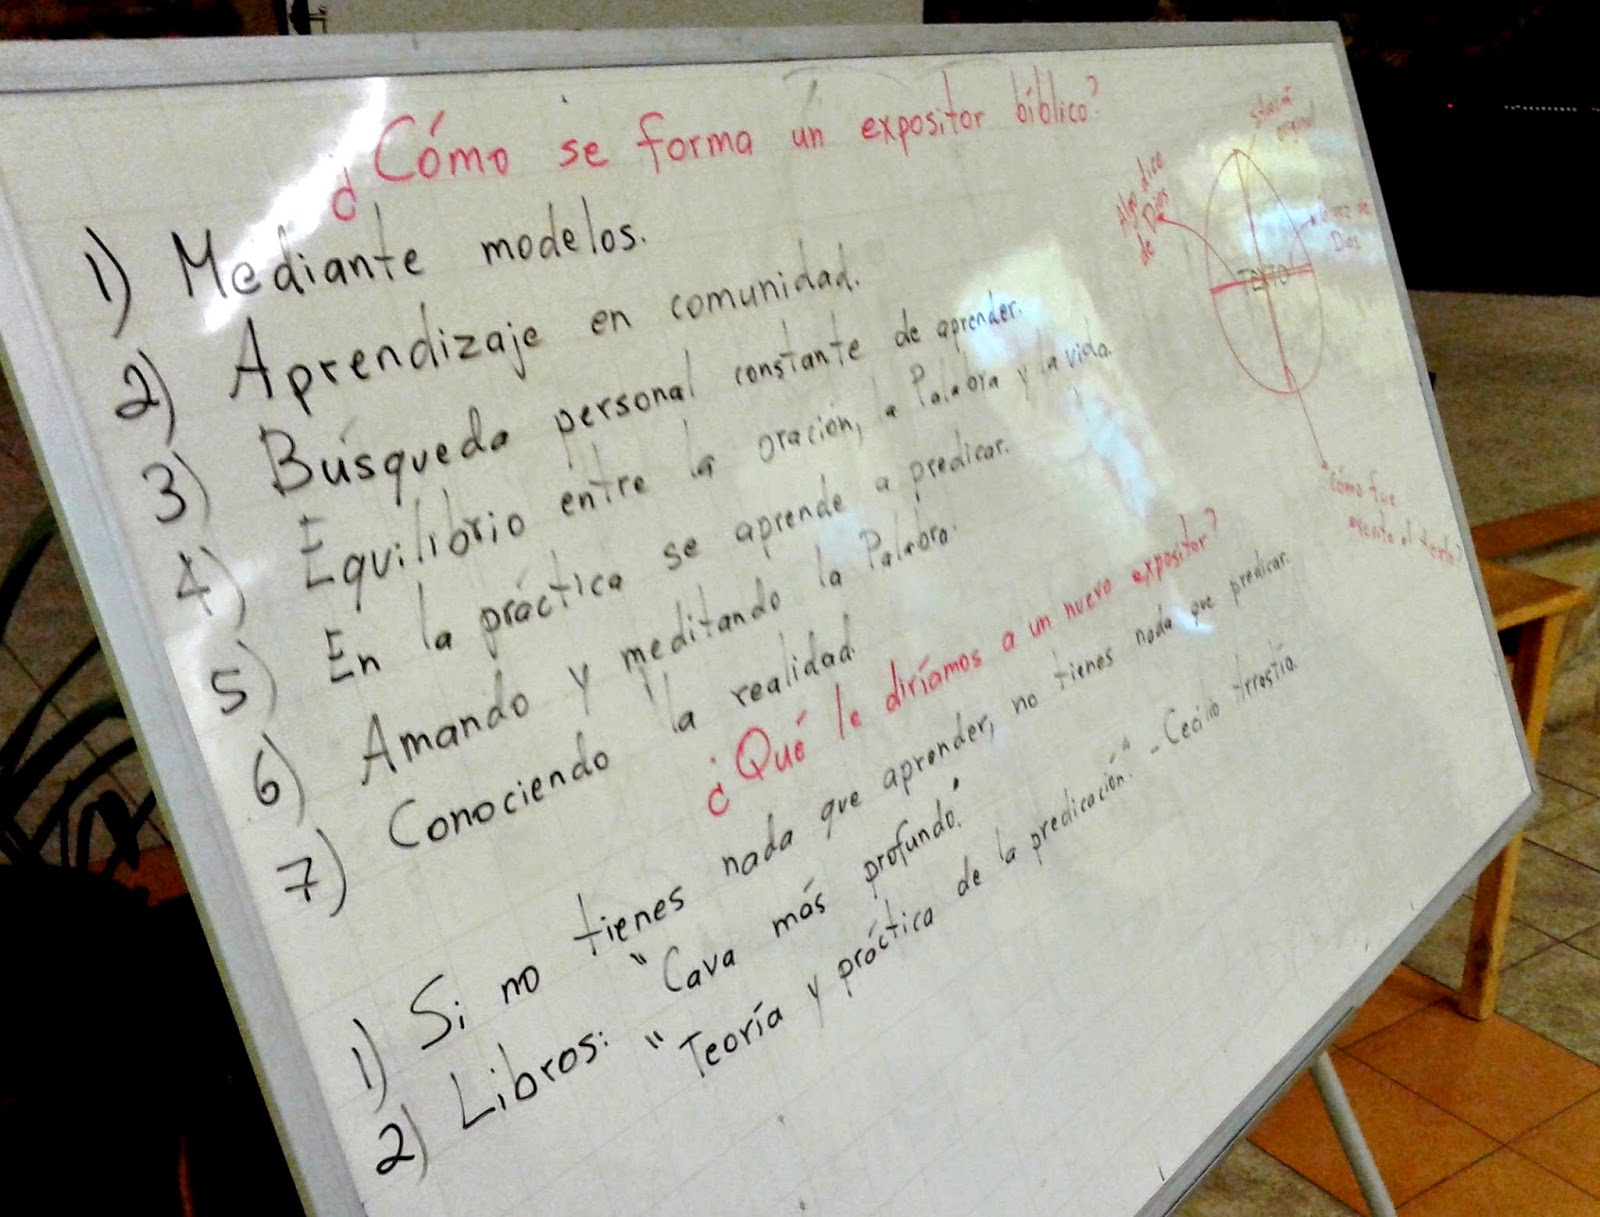 ¿Cómo se forma un expositor bíblico?
1) Mediante modelos.
2) Aprendizaje en comunidad.
3) Búsqueda personal constante de aprender.
4) Equilibrio entre la oración, la Palabra y la vida.
5) En la práctica se aprende a predicar.
6) Amando y meditando la Palabra.
7) Conociendo la realidad.
¿Qué le diríamos a un nuevo expositor?
1) Si no tienes nada que aprender, no tienes nada que predicar.
2) Libros: "Cava más profundo."
"Teoría y práctica de la predicación." - Cecilio Arrastía.
original
Algo dice
de Dios
Dios
TEXTO
Cómo fue
escrito el texto?